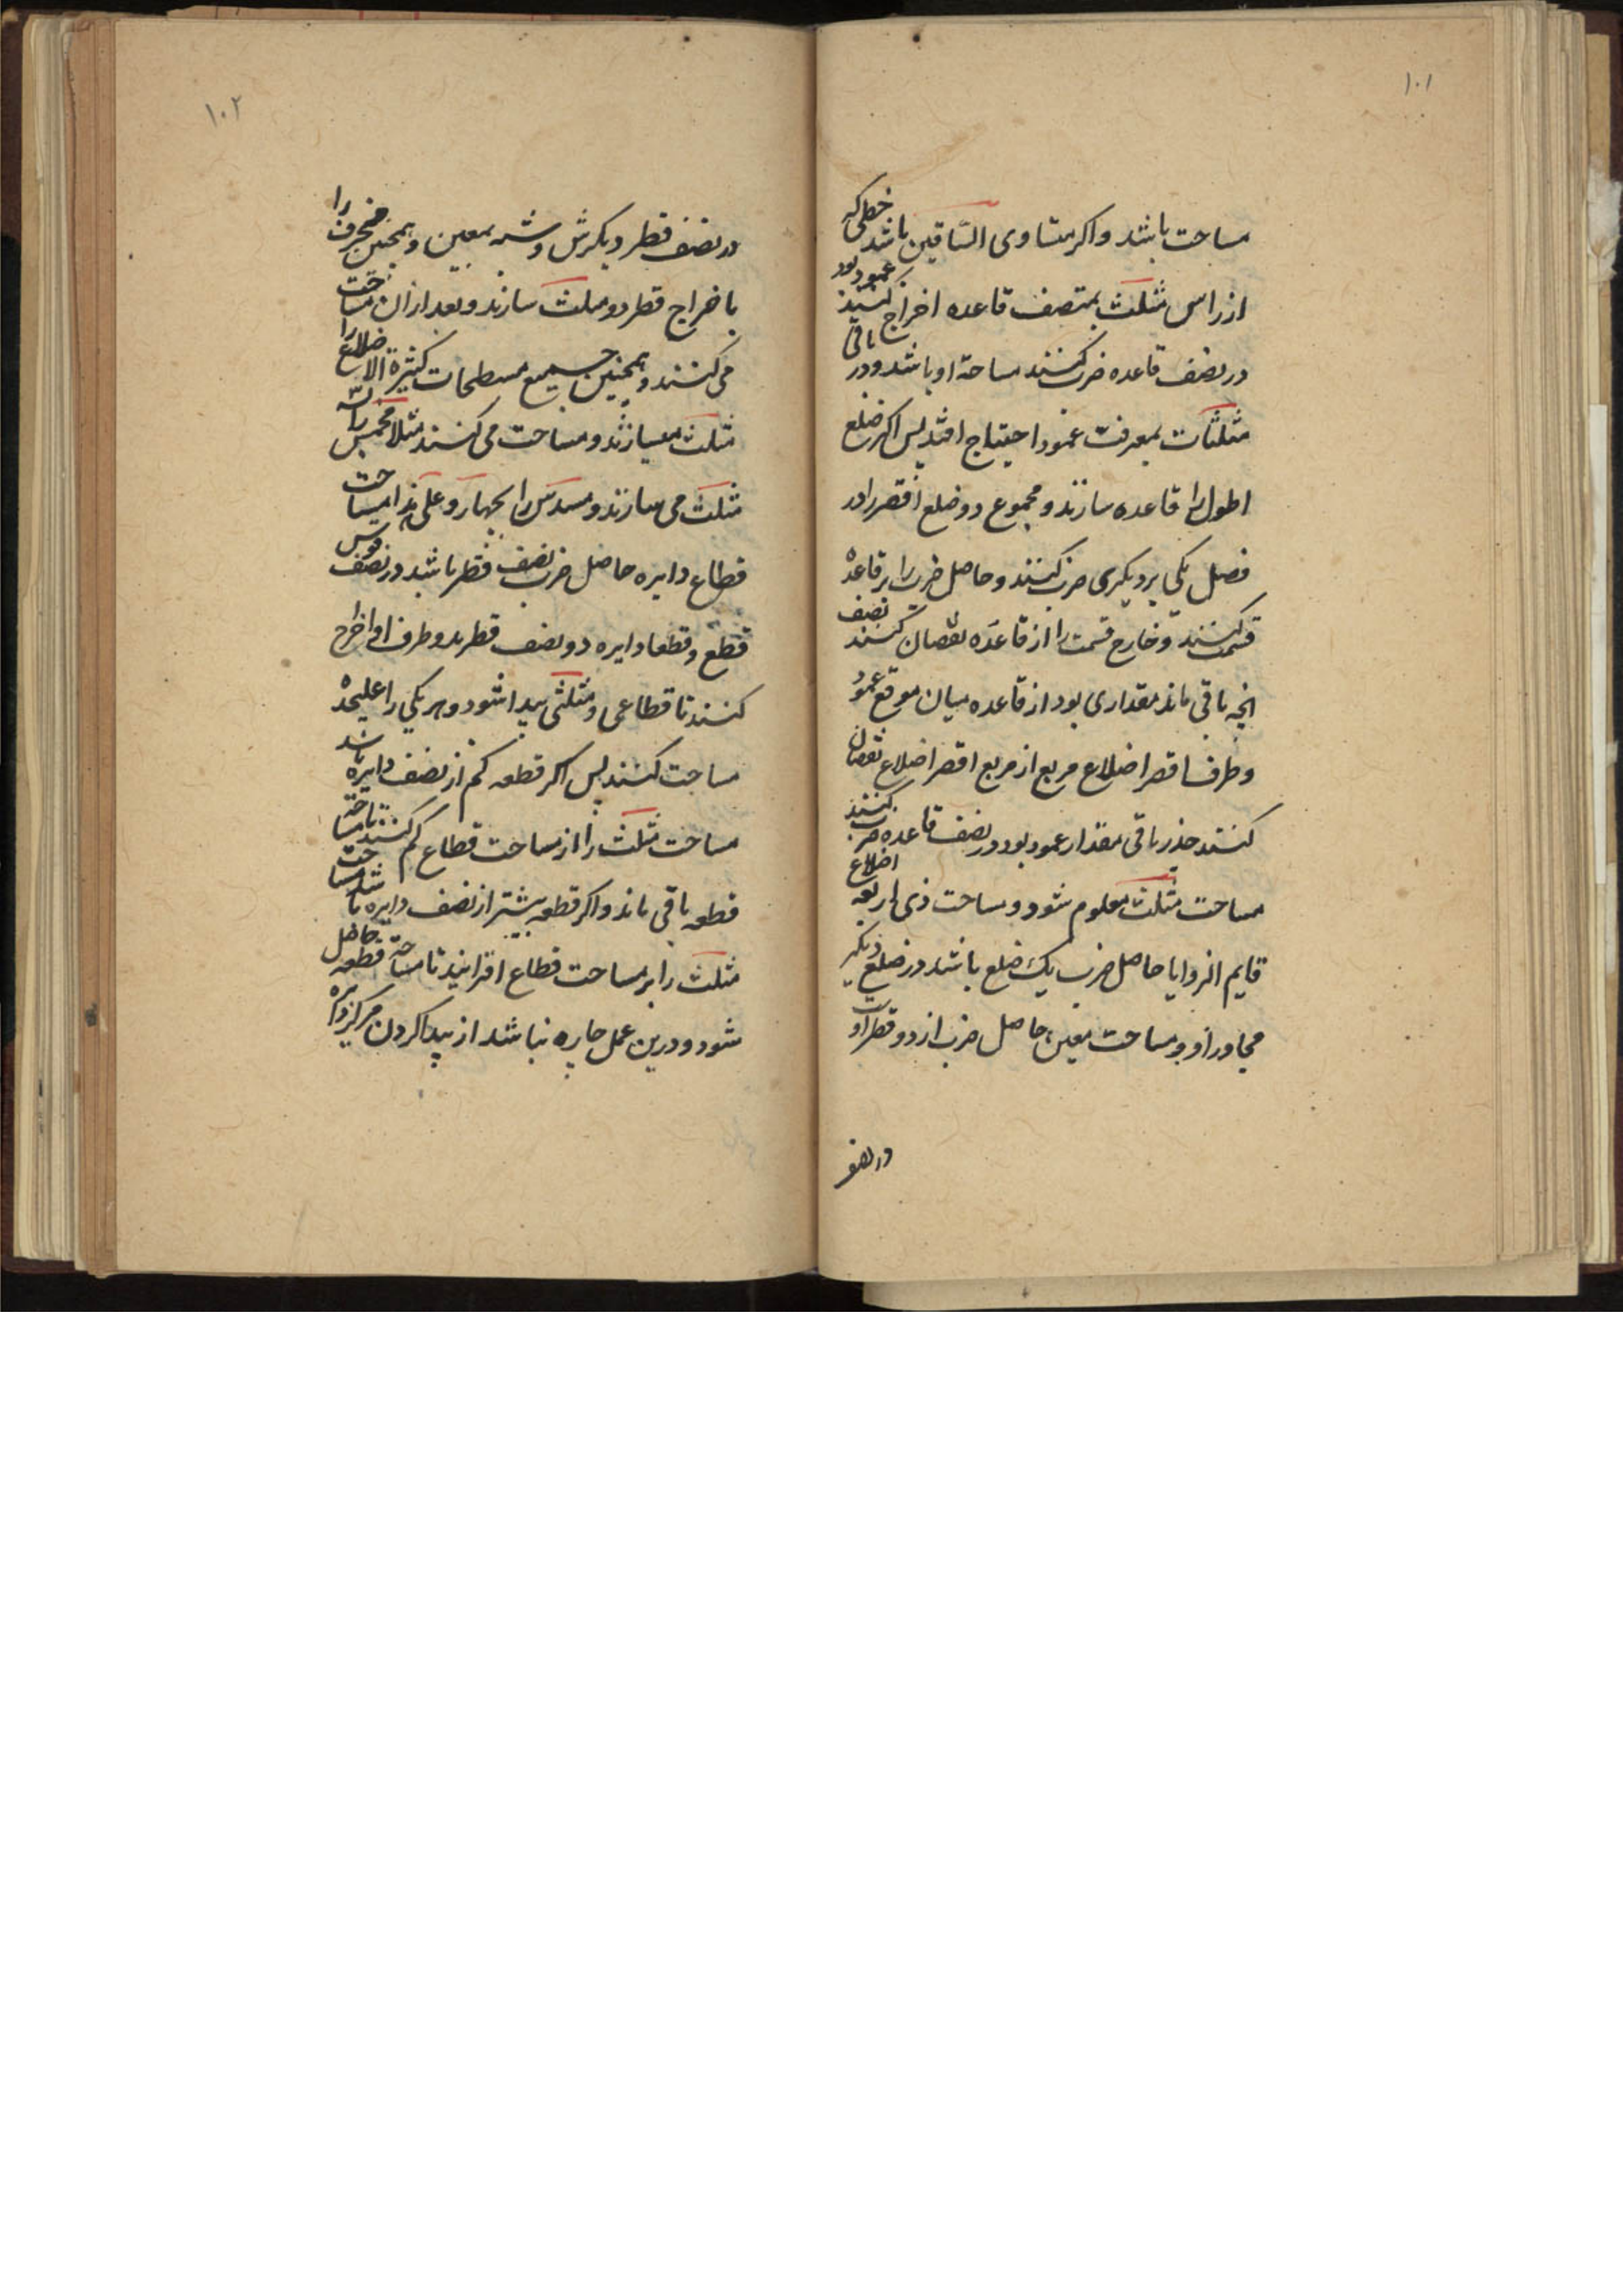 ۱۰۱
مساحت باشد و اکر متساوی الساقین باشد خطی که
از راس مثلث بمنتصف قاعده اخراج کنند عمود بود
در نصف قاعده ضرب کنند مساحة او باشد و در باقی
مثلثات بمعرفت عمود احتیاج افتد پس اکر ضلع
اطول را قاعده سازند و مجموع دو ضلع اقصر را در
فضل یکی بر دیکری ضرب کنند و حاصل ضرب را بر قاعده
قسمت کنند و خارج قسمت را از قاعده نقصان کنند نصف
انچه باقی ماند مقداری بود از قاعده میان موقع عمود
و طرف اقصر اضلاع مربع از مربع اقصر اضلاع نقصان
کنند جذر باقی مقدار عمود بود در نصف قاعده ضرب کنند
مساحت مثلث معلوم شود و مساحت ذی اربعه اضلاع
قایم الزوایا حاصل ضرب یک ضلع باشد در ضلع دیکر
مجاور او و مساحت معین حاصل ضرب از دو قطر اوست
در نصف
۱۰۲
در نصف قطر دیکرش و شبه بمعین و همچنین منحرف را
باخراج قطر دو مثلث سازند و بعد ازان مساحت
می کنند و همچنین جمیع مسطحات کثیرة الاضلاع را
مثلث میسازند و مساحت می کنند مثلا مخمس را بسه
مثلث می سازند و مسدس را بچهار و علی هذا مساحت
قطاع دایره حاصل ضرب نصف قطر باشد در نصف قوس
قطع و قطعا دایره دو نصف قطر بدو طرف او اخراج
کنند تا قطاعی و مثلثی پیدا شود و هر یکی را علیحده
مساحت کنند پس اکر قطعه کم از نصف دایره باشد
مساحت مثلث را از مساحت قطاع کم کنند تا مساحة
قطعه باقی ماند و اکر قطعه بیشتر از نصف دایره باشد مساحت
مثلث را بر مساحت قطاع افزایند تا مساحة قطعه حاصل
شود و درین عمل چاره نباشد از پیدا کردن مرکز دایره